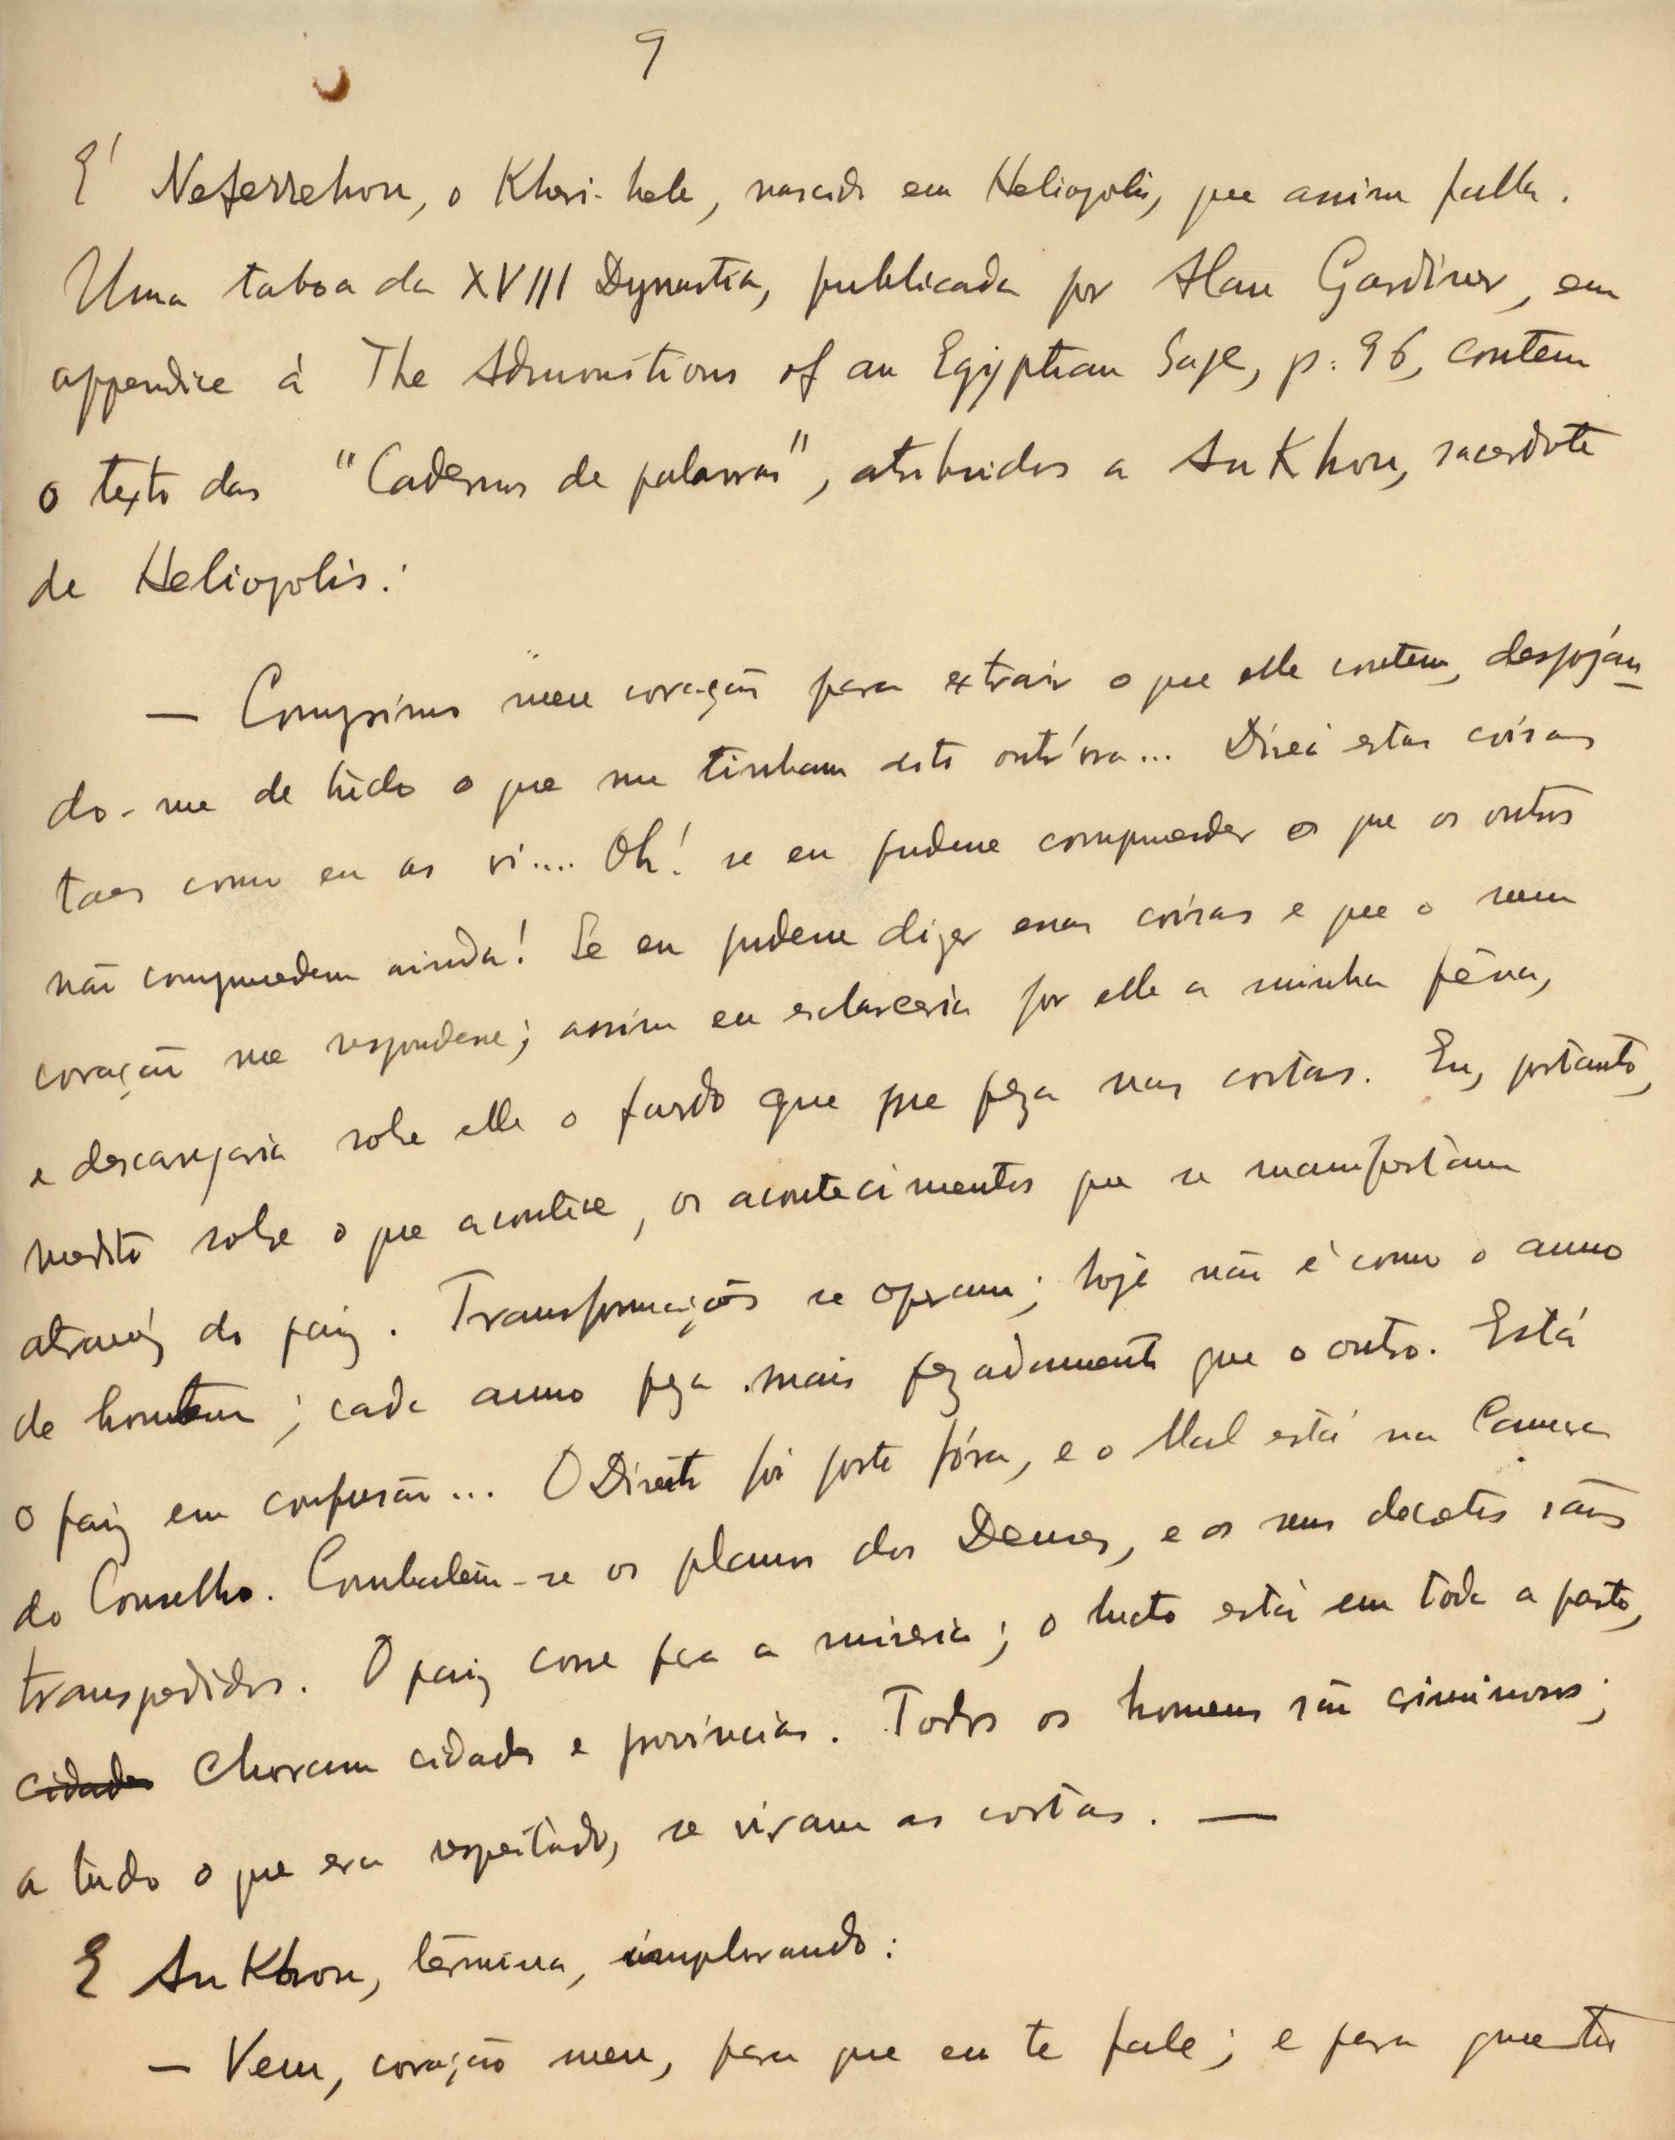 9
E' Neferrehou, o Kheri-hebe, nascido em Heliopolis, que assim falla.
Uma taboa da XVIII Dynastia, publicada por Alan Gardiner, em
appendice á The Admonitions of an Egyptian Sage, p. 96, contem
o texto das "Cadernos de palavras", atribuidos a AnKhou, sacerdote
de Heliopolis:
— Comprimo meu coração para extrair o que elle contem, despojan_
do-me de tudo o que me tinham dito outr'ora... Direi estas coisas
taes como eu as vi.... Oh! se eu pudesse comprehender o que os outros
não comprehedem ainda! Se eu pudesse dizer essas coisas e que o meu
coração me respondesse; assim eu esclareceria por elle a minha pena,
e descarregaria sobre elle o fardo que me peza nas costas. Eu, portanto,
medito sobre o que acontece, os acontecimentos que se manifestam
atravéz do paiz. Transformações se operam; hoje não é como o anno
de hontem; cada anno peza mais pezadamente que o outro. Está
o paiz em confusão... O Direito foi posto fóra, e o Mal está na Camera
do Conselho. Combatem-se os planos dos Deuses, e os seus decretos são
transgredidos. O paiz corre para a miseria; o lucto está em toda a parte,
cidades Choram cidades e provincias. Todos os homens são criminosos;
a tudo o que era respeitado, se viram as costas. —
E AnKhou, termina, implorando:
— Vem, coração meu, para que eu te fale; e para que tu